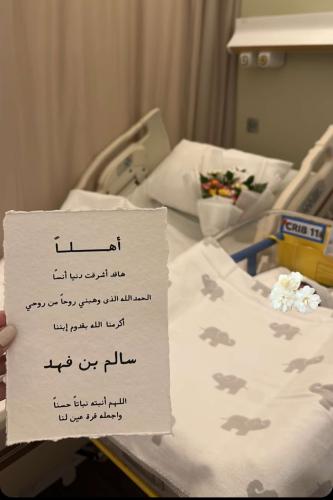 أهـــلاً
هاقد أشرقت دنيا أنسنا
الحمدالله الذي وهبني روحاً من روحي
أكرمنا الله بقدوم إبننا
سالم بن فهد
اللهم أنبته نباتاً حسناً
واجعله قرة عين لنا
CRIB 11